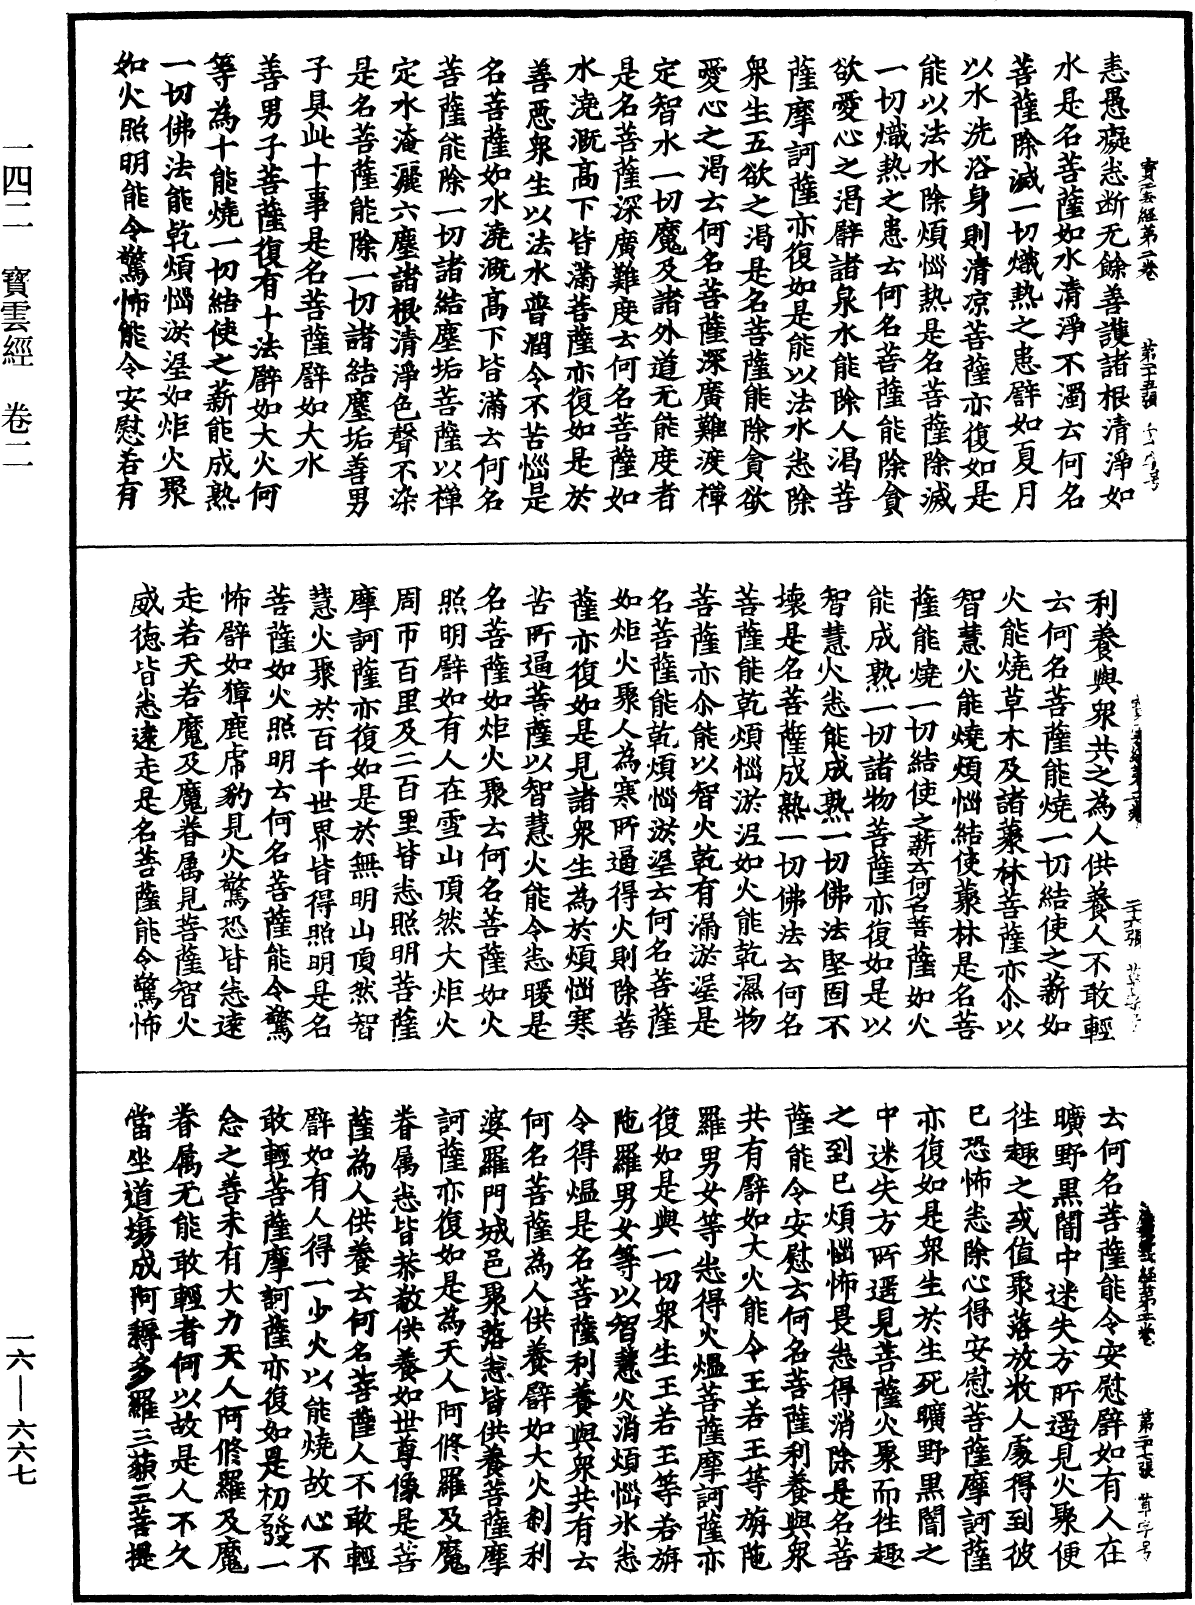 恚愚癡悉断无餘善護諸根清淨如
水是名菩薩如水清淨不濁云何名
菩薩除滅一切熾熱之患譬如夏月
以水洗浴身則清凉菩薩亦復如是
能以法水除煩惱熱是名菩薩除滅
一切熾熱之患云何名菩薩能除貪
欲愛心之渴譬諸泉水能除人渴菩
薩摩訶薩亦復如是能以法水悉除
衆生五欲之渴是名菩薩能除貪欲
愛心之渴云何名菩薩深廣難渡禪
定智水一切魔及諸外道无能度者
是名菩薩深廣難度云何名菩薩如
水澆溉髙下皆滿菩薩亦復如是於
善惡衆生以法水普潤令不苦惱是
名菩薩如水澆溉髙下皆滿云何名
菩薩能除一切諸結塵垢菩薩以禪
定水淹灑六塵諸根清淨色聲不染
是名菩薩能除一切諸結塵垢善男
子具此十事是名菩薩譬如大水
善男子菩薩復有十法譬如大火何
等為十能燒一切結使之薪能成熟
一切佛法能乾煩惱淤埿如炬火聚
如火照明能令驚怖能令安慰若有
寶雲經第二卷 第二十五張 草字号
利養與衆共之為人供養人不敢輕
云何名菩薩能燒一切結使之薪如
火能燒草木及諸藂林菩薩亦尒以
智慧火能燒煩惱結使藂林是名菩
薩能燒一切結使之薪云何名菩薩如火
能成熟一切諸物菩薩亦復如是以
智慧火悉能成熟一切佛法堅固不
壞是名菩薩成熟一切佛法云何名
菩薩能乾煩惱淤泥如火能乾濕物
菩薩亦尒能以智火乾有漏淤埿是
名菩薩能乾煩惱淤埿云何名菩薩
如炬火聚人為寒所逼得火則除菩
薩亦復如是見諸衆生為於煩惱寒
苦所逼菩薩以智慧火能令悉暖是
名菩薩如炬火聚云何名菩薩如火
照明譬如有人在雪山頂然大炬火
周帀百里及二百里皆悉照明菩薩
摩訶薩亦復如是於無明山頂然智
慧火聚於百千世界皆得照明是名
菩薩如火照明云何名菩薩能令驚
怖譬如獐鹿虎豹見火驚恐皆悉遠
走若天若魔及魔眷属見菩薩智火
威德皆悉遠走是名菩薩能令驚怖
二十六張
云何名菩薩能令安慰譬如有人在
曠野黒闇中迷失方所遥見火聚便
徃趣之或值聚落放牧人處得到彼
已恐怖悉除心得安慰菩薩摩訶薩
亦復如是衆生於生死曠野黒闇之
中迷失方所遥見菩薩火聚而徃趣
之到已煩惱怖畏悉得消除是名菩
薩能令安慰云何名菩薩利養與衆
共有譬如大火能令王若王等旃陁
羅男女等悉得火煴菩薩摩訶薩亦
復如是與一切衆生王若王等若旃
陁羅男女等以智慧火消煩惱氷悉
令得煴是名菩薩利養與衆共有云
何名菩薩為人供養譬如大火刹利
婆羅門城邑聚落悉皆供養菩薩摩
訶薩亦復如是為天人阿脩羅及魔
眷属悉皆恭敬供養如世尊像是菩
薩為人供養云何名菩薩人不敢輕
譬如有人得一少火以能燒故心不
敢輕菩薩摩訶薩亦復如是初發一
念之善未有大力天人阿脩羅及魔
眷属无能敢輕者何以故是人不久
當坐道塲成阿耨多羅三藐三菩提
第二十七張 草字号
一四二 寶雲經 卷二
一六—六六七